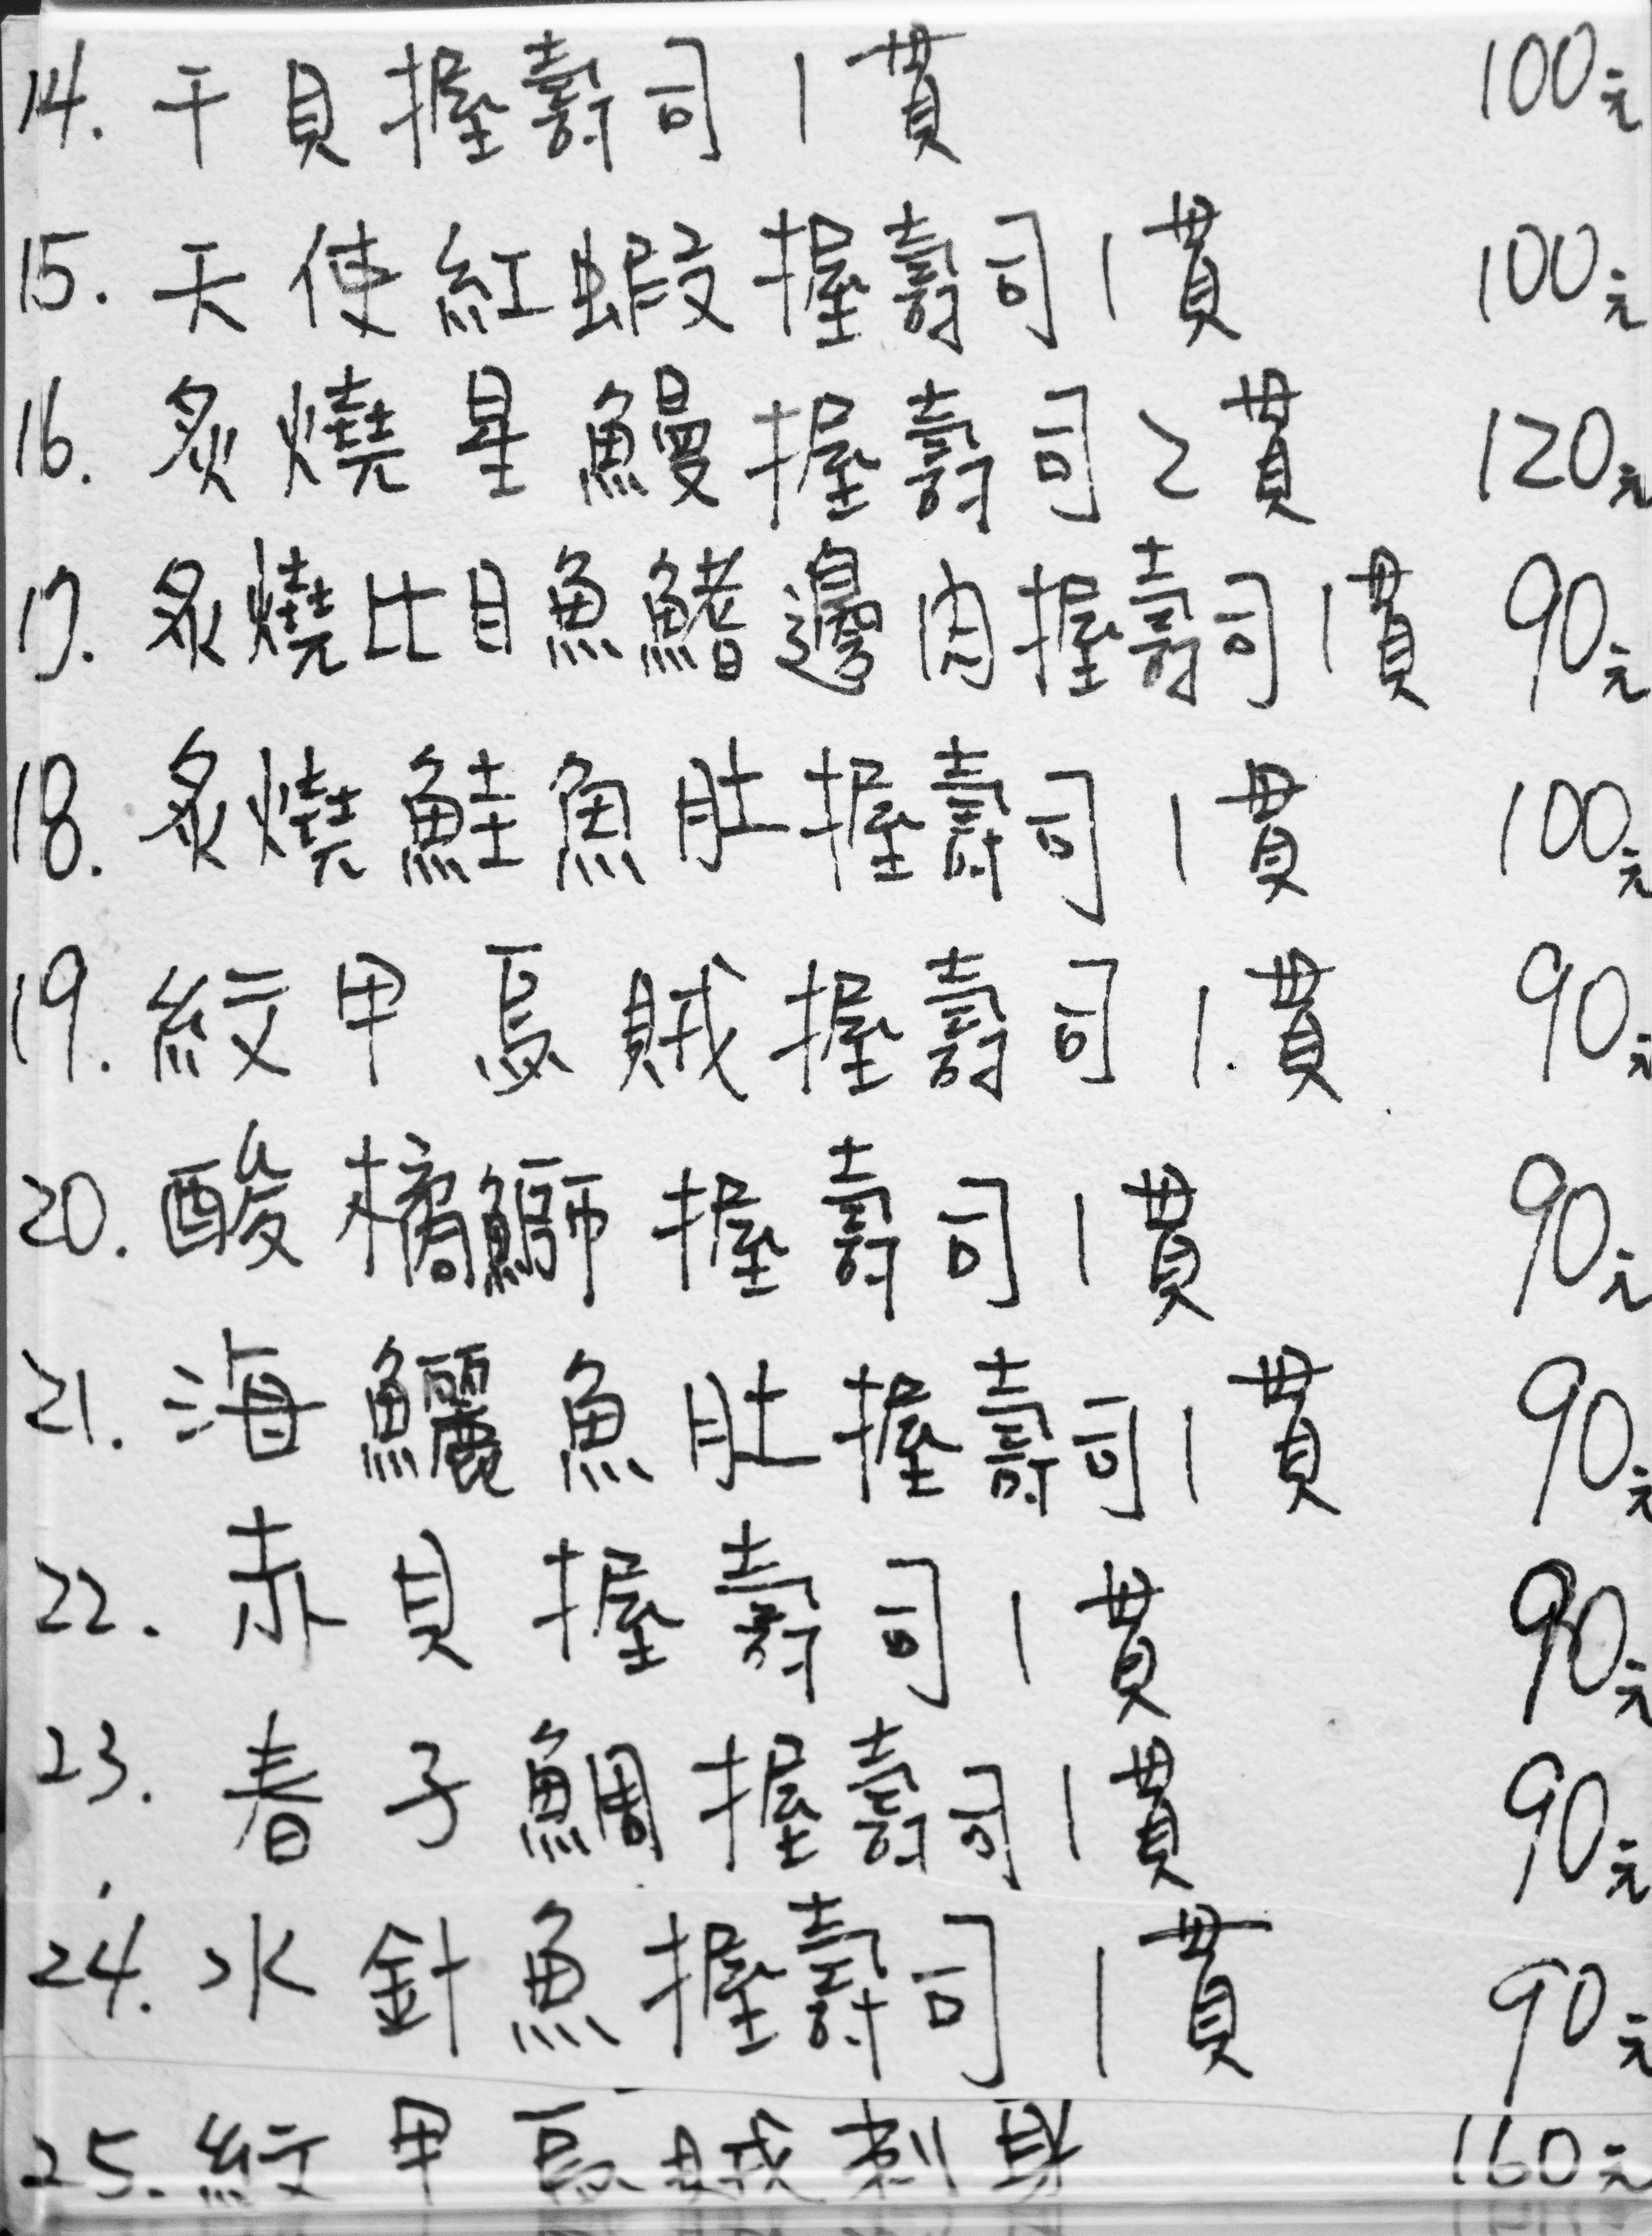 14. 干貝握壽司1貫 100元
15. 天使紅蝦握壽司1貫 100元
16. 炙燒星鰻握壽司2貫 120元
17. 炙燒比目魚鰭邊肉握壽司1貫 90元
18. 炙燒鮭魚肚握壽司1貫 100元
19. 紋甲烏賊握壽司1.貫 90元
20. 酸橘鰤握壽司1貫 90元
21. 海鱺魚肚握壽司1貫 90元
22. 赤貝握壽司1貫 90元
23. 春子鯛握壽司1貫 90元
24. 水針魚握壽司1貫 90元
25. 紋甲烏賊刺身 160元